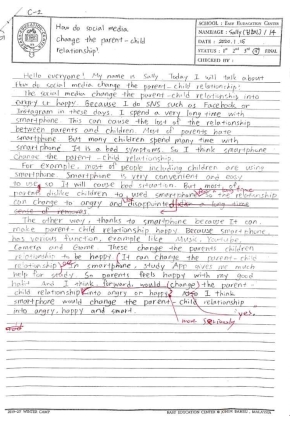 C-2
How do social media
change the parent-child
relationship?
SCHOOL : EASY EDUCATION CENTER
NAME/AGE : Sally / 14
DATE : 2020. 1. 16
STATUS : 1st 2nd 3rd FINAL
CHECKED BY :
Hello everyone! My name is Sally. Today I will talk about
How do social media change the parent-child relationship?
The social media change the parent-child relationship into
angry or happy. Because I do SNS such as Facebook or
Instagram in these days. I spend a very long time with
smartphone. This can cause the lost of the relationship
between parents and children. Most of parents hate
smartphone. But many children spend many time with
smartphone. It is a bad symptoms. So I think smartphone
change the parent-child relationship.
For example, most of people including children are using
smartphone. Smartphone is very convenient and easy
to use so It will cause bad situation. But most of
parent dislike children to use smartphone the relationship
can change to angry and disappointed a long time
The other way, thanks to smartphone because It can
make parent-child relationship happy. Because smartphone
has various function, example like Music, Youtube,
Camera and Game. These change the parents children
relationship to be happy. It can change the parent-child
relationship. In smartphone, study App gives us much
help for study. So parents feels happy with my good
habit and I think forward, would (change) the parent-
child relationship into angry or happy. Also I think
smartphone would change the parent-child relationship
into angry, happy and smart.
"yes."
more seriously
2019-20 WINTER CAMP
EASY EDUCATION CENTER @ JOHOR BAHRU, MALAYSIA